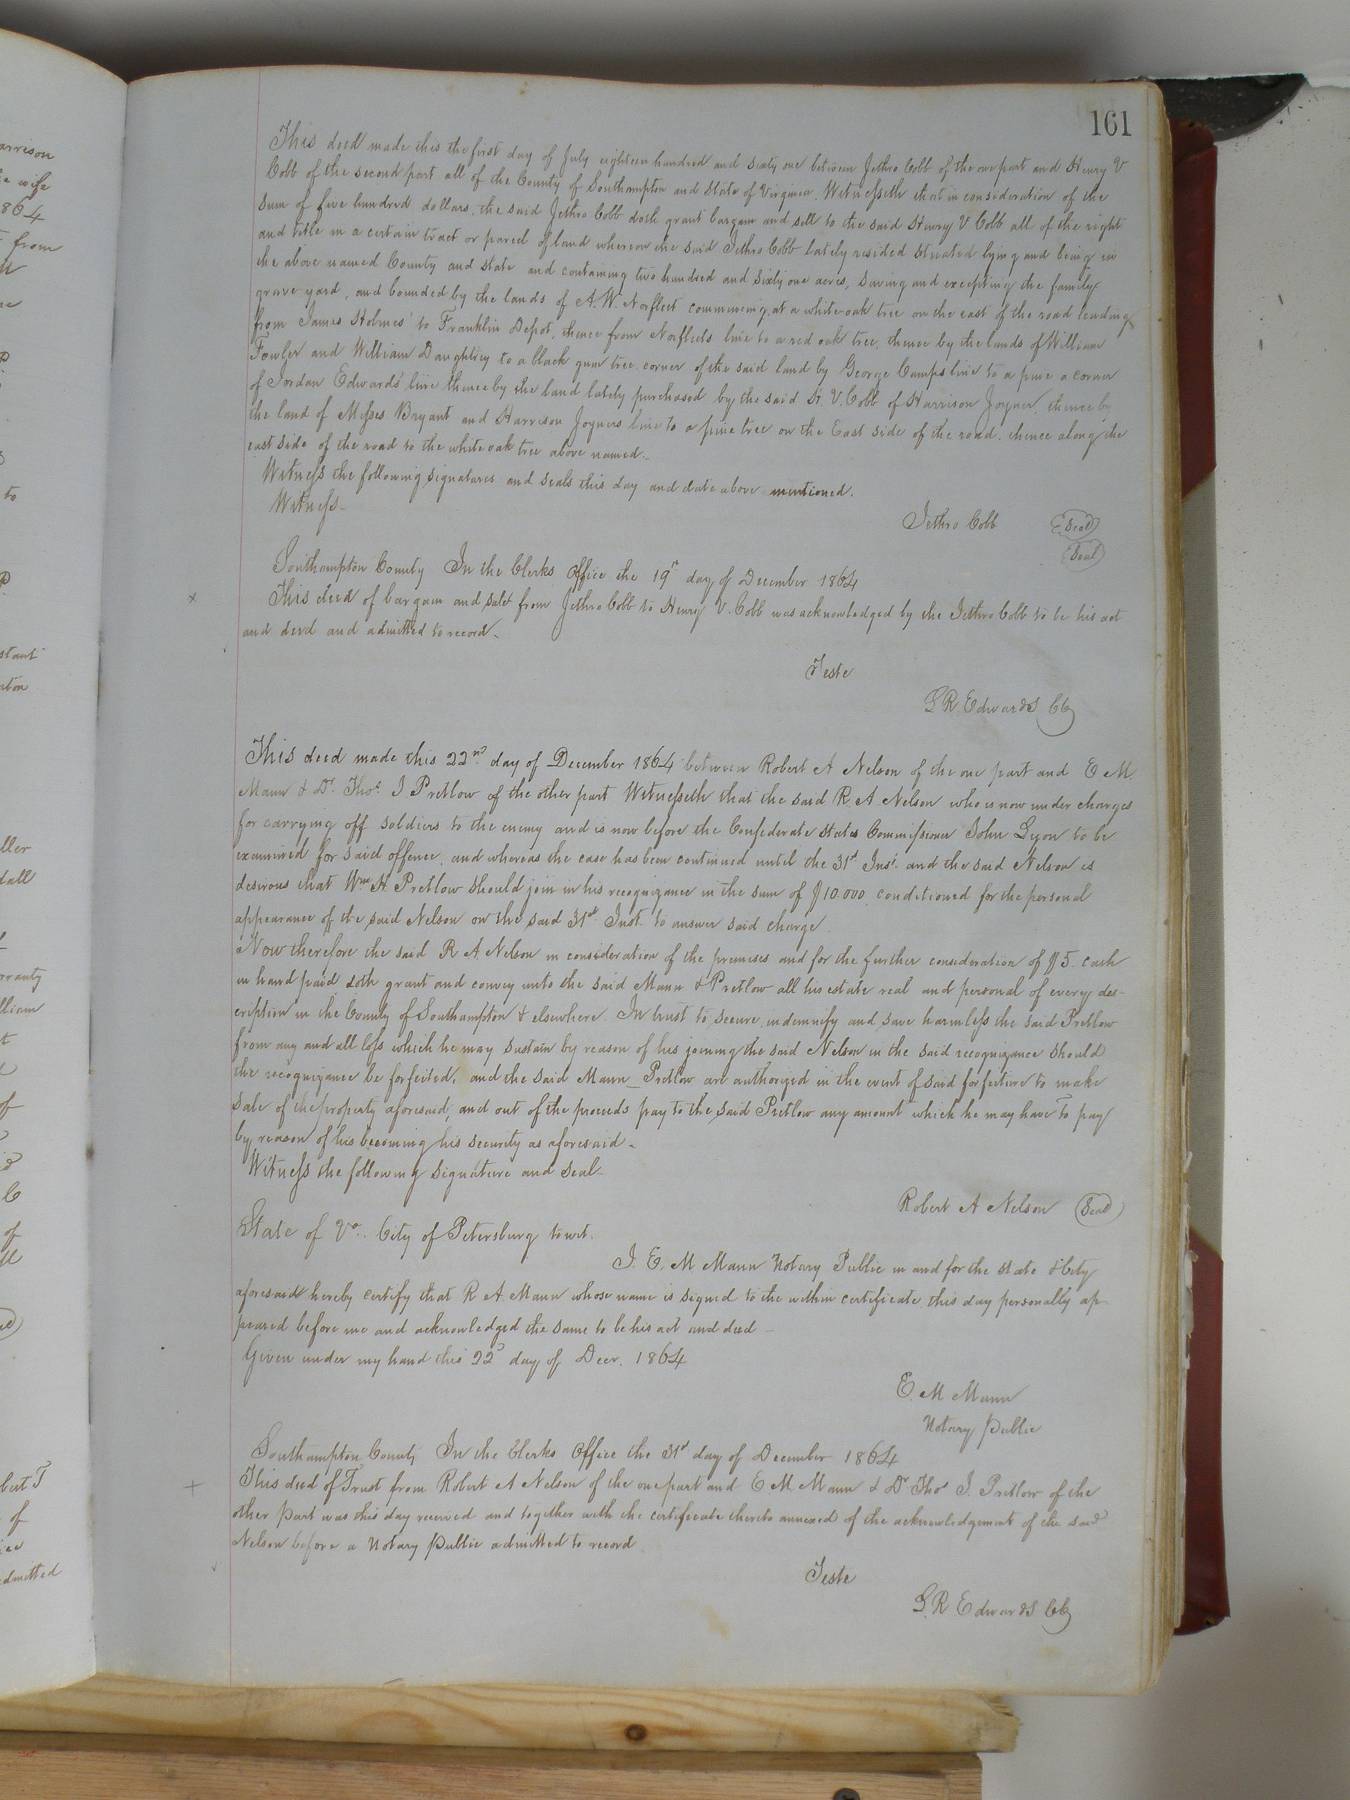 161
This deed made this the first day of July eighteen hundred and sixty one between Jethro Cobb of the one part and Henry V
Cobb of the second part all of the County of Southampton and State of Virginia. Witnesseth that in consideration of the
sum of five hundred dollars, the said Jethro Cobb doth grant bargain and sell to the said Henry V Cobb all of the right
and title in a certain tract or parcel of land whereon the said Jethro Cobb lately resided situated lying and being in
the above named County and State and containing two hundred and sixty one acres, saving and excepting the family
grave yard, and bounded by the lands of A. W. Norfleet commencing at a white oak tree on the east of the road leading
from James Holmes' to Franklin Depot, thence from Norfleets line to a red oak tree, thence by the lands of William
Fowler and William Daughtrey to a black gum tree corner of the said land by George Camps line to a pine a corner
of Jordan Edwards' line thence by the land lately purchased by the said H. V. Cobb of Harrison Joyner, thence by
the land of Messes Bryant and Harrison Joyners line to a pine tree on the East side of the road. thence along the
east side of the road to the white oak tree above named.
Witness the following signatures and seals this day and date above mentioned.
Witness-
Jethro Cobb Seal
Seal
Southampton County In the Clerks Office the 19th day of December 1864
This deed of bargain and sale from Jethro Cobb to Henry V. Cobb was acknowledged by the Jethro Cobb to be his act
and deed and admitted to record-
Teste
L R Edwards Clk
This deed made this 22nd day of December 1864 between Robert A Nelson of the one part and E M
Mann & Dr. Thos. J Pretlow of the other part Witnesseth that the said R. A Nelson who is now under charges
for carrying off soldiers to the enemy and is now before the Confederate States Commissioner John Lyon to be
examined for said offence, and whereas the case has been continued until the 31st Inst. and the said Nelson is
desirous that Wm H Pretlow should join in his recognizance in the sum of $10.000 conditioned for the personal
appearance of the said Nelson on the said 31st Inst. to answer said charge
Now therefore the said R A. Nelson in consideration of the premises and for the further consideration of $5. cash
in hand paid doth grant and convey unto the said Mann & Pretlow all his estate real and personal of every des-
cription in the County of Southampton & elsewhere In trust to secure, indemnify and save harmless the said Pretlow
from any and all loss which he may sustain by reason of his joining the said Nelson in the said recognizance should
the recognizance be forfeited, and the said Mann_Pretlow are authorized in the event of said forfeiture to make
sale of the property aforesaid, and out of the proceeds pay to the said Pretlow any amount which he may have to pay
by reason of his becoming his security as aforesaid-
Witness the following signature and seal-
Robert A Nelson Seal
State of Va. City of Petersburg to wit.
I. E. M Mann Notary Public in and for the state & City
aforesaid hereby certify that R A. Mann whose name is signed to the within certificate this day personally ap-
peared before me and acknowledged the same to be his act and deed-
Given under my hand this 22d day of Decr. 1864
E. M Mann
Notary Public
Southampton County In the Clerks Office the 31st day of December 1864
This deed of Trust from Robert A Nelson of the one part and E M. Mann & Dr Thos J. Pretlow of the
other part was this day received and together with the certificate thereto annexed of the acknowledgement of the said
Nelson before a Notary Public admitted to record
Teste
L. R Edwards Clk